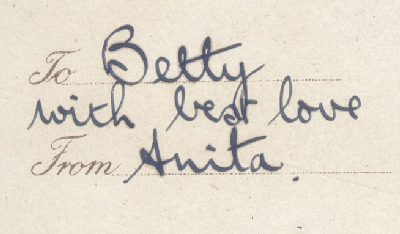 To Betty
with best love
From Anita.